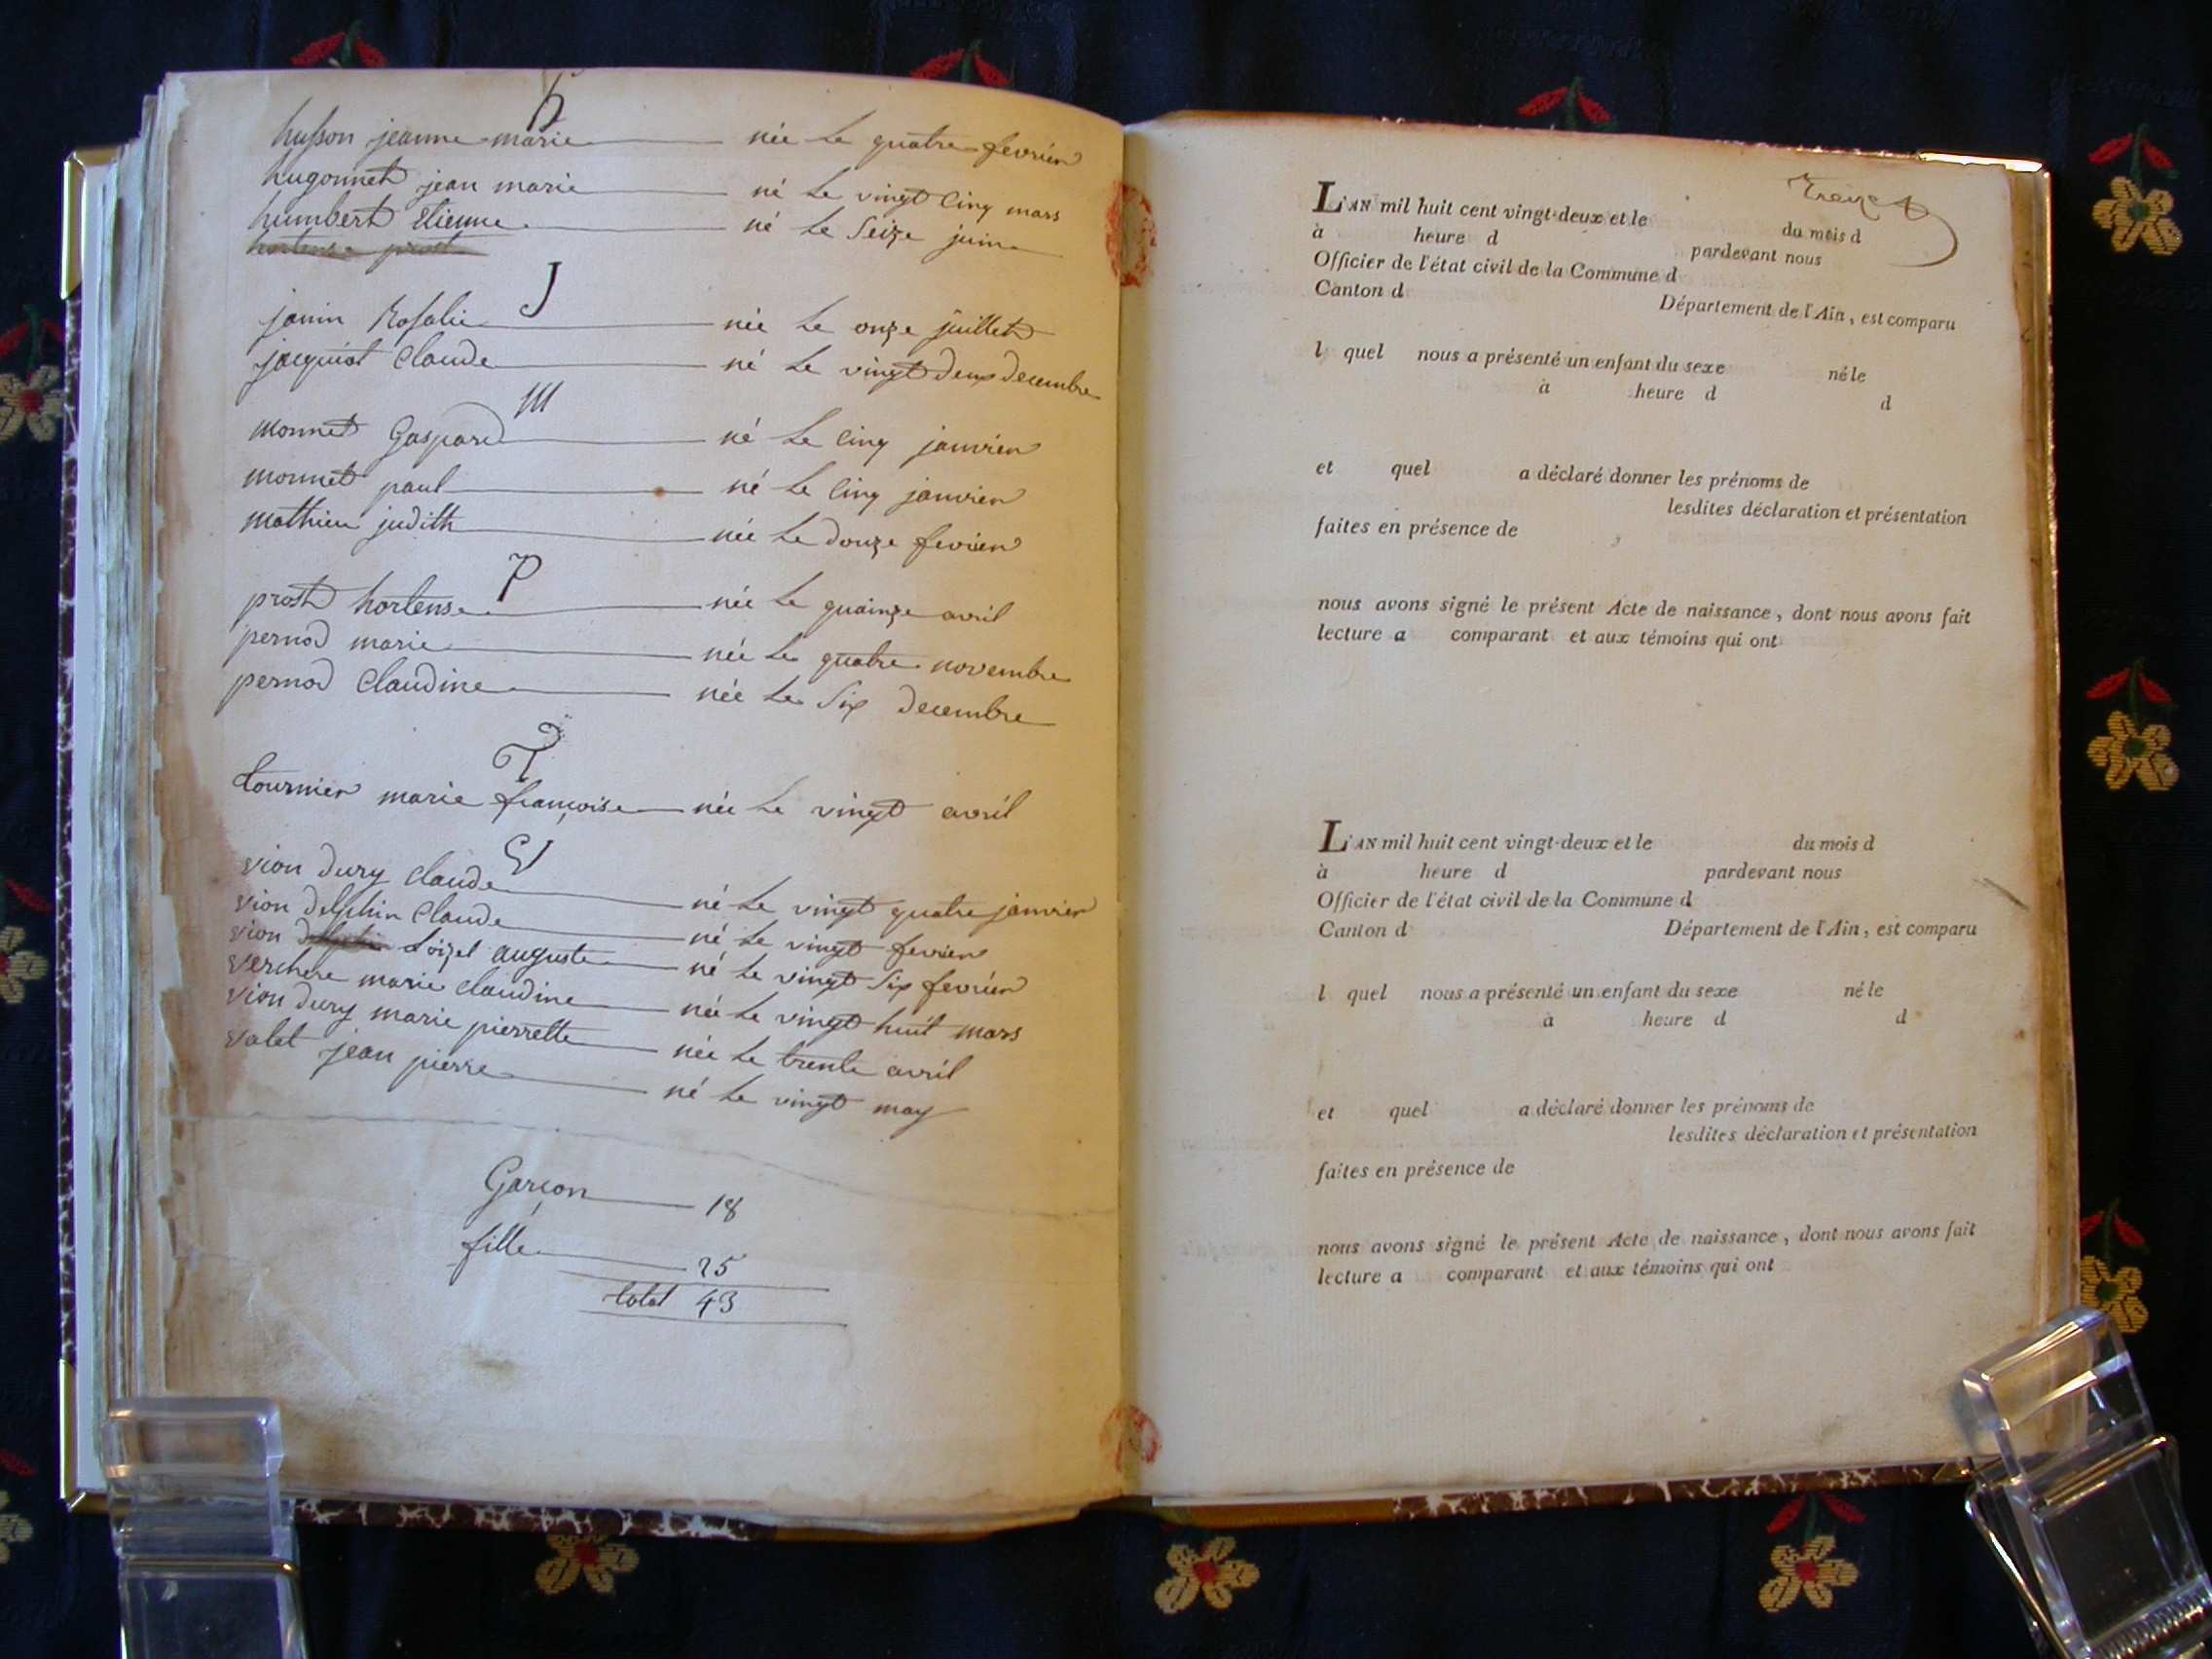 h
husson jeanne marie née le quatre fevrier
hugonnet jean marie né le vingt cinq mars
humbert Etienne né le Seize juin
hortense prost
J
janin Rosalie née le onze juillet
jacquiot Claude né le vingt deux decembre
M
monnet Gaspard né le cinq janvier
monnet paul né le cinq janvier
mathieu judith née le douze fevrier
P
prost hortense née le quainze avril
pernod marie née le quatre novembre
pernod Claudine née le Six decembre
T
tournier marie françoise née le vingt avril
V
vion dury claude né le vingt quatre janvier
vion delphin Claude né le vingt fevrier
vion Loizel auguste né le vingt Six fevrier
verchere marie claudine née le vingt huit mars
vion dury marie pierrette née le trente avril
valet jean pierre né le vingt may
Garçon 18
fille 25
total 43
Treize
L'AN mil huit cent vingt-deux et le du mois d
à heure d pardevant nous
Officier de l'état civil de la Commune d
Canton d Département de l'Ain, est comparu
l quel nous a présenté un enfant du sexe né le
à heure d d
et quel a déclaré donner les prénoms de
lesdites déclaration et présentation
faites en présence de
nous avons signé le présent Acte de naissance, dont nous avons fait
lecture a comparant et aux témoins qui ont
L'AN mil huit cent vingt-deux et le du mois d
à heure d pardevant nous
Officier de l'état civil de la Commune d
Canton d Département de l'Ain, est comparu
l quel nous a présenté un enfant du sexe né le
à heure d d
et quel a déclaré donner les prénoms de
lesdites déclaration et présentation
faites en présence de
nous avons signé le présent Acte de naissance, dont nous avons fait
lecture a comparant et aux témoins qui ont